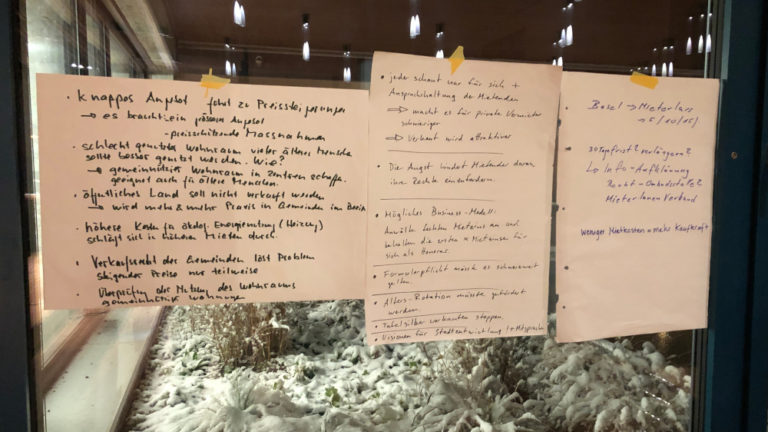 • Knappes Angebot führt zu Preissteigerungen
→ es braucht: ein grösseres Angebot
- preissenkende Massnahmen
• schlecht genutzter Wohnraum vieler älterer Menschen
sollte besser genutzt werden. Wie?
→ gemeinnütziger Wohnraum in Zentren schaffen
geeignet auch für ältere Menschen.
• öffentliches Land soll nicht verkauft werden
→ wird mehr & mehr Praxis in Gemeinden im
• höhere Kosten für ökolog. Energienutzung (Heizung)
schlägt sich in höheren Mieten durch.
• Verkaufsrecht der Gemeinden löst Problem
steigender Preise nur teilweise
• Überprüfung der Nutzung des Wohnraums
gemeinnütziger Wohnungen
• jeder schaut nur für sich +
Anspruchshaltung der Mietenden
⇒ macht es für private Vermieter
schwieriger
⇒ Verkauf wird attraktiver
• Die Angst hindert Mietende daran,
ihre Rechte einzufordern.
• Mögliches Business-Modell:
Anwälte fechten Mietzins an und
behalten die ersten x Mietzinse für
sich als Honorar.
• Formularpflicht müsste es schweizweit
geben.
• Alters-Rotation müsste gefördert
werden
• Tafelsilber verkaufen stoppen.
• Visionen für Stadtentwicklung! + Mitsprache
Basel → Mieterlass
→ 5/10/15/
30 Tagefrist? verlängern?
↳ Info-Aufklärung
Recht-Ombudstelle?
MieterInnen Verband
Weniger Mietkosten = mehr Kaufkraft